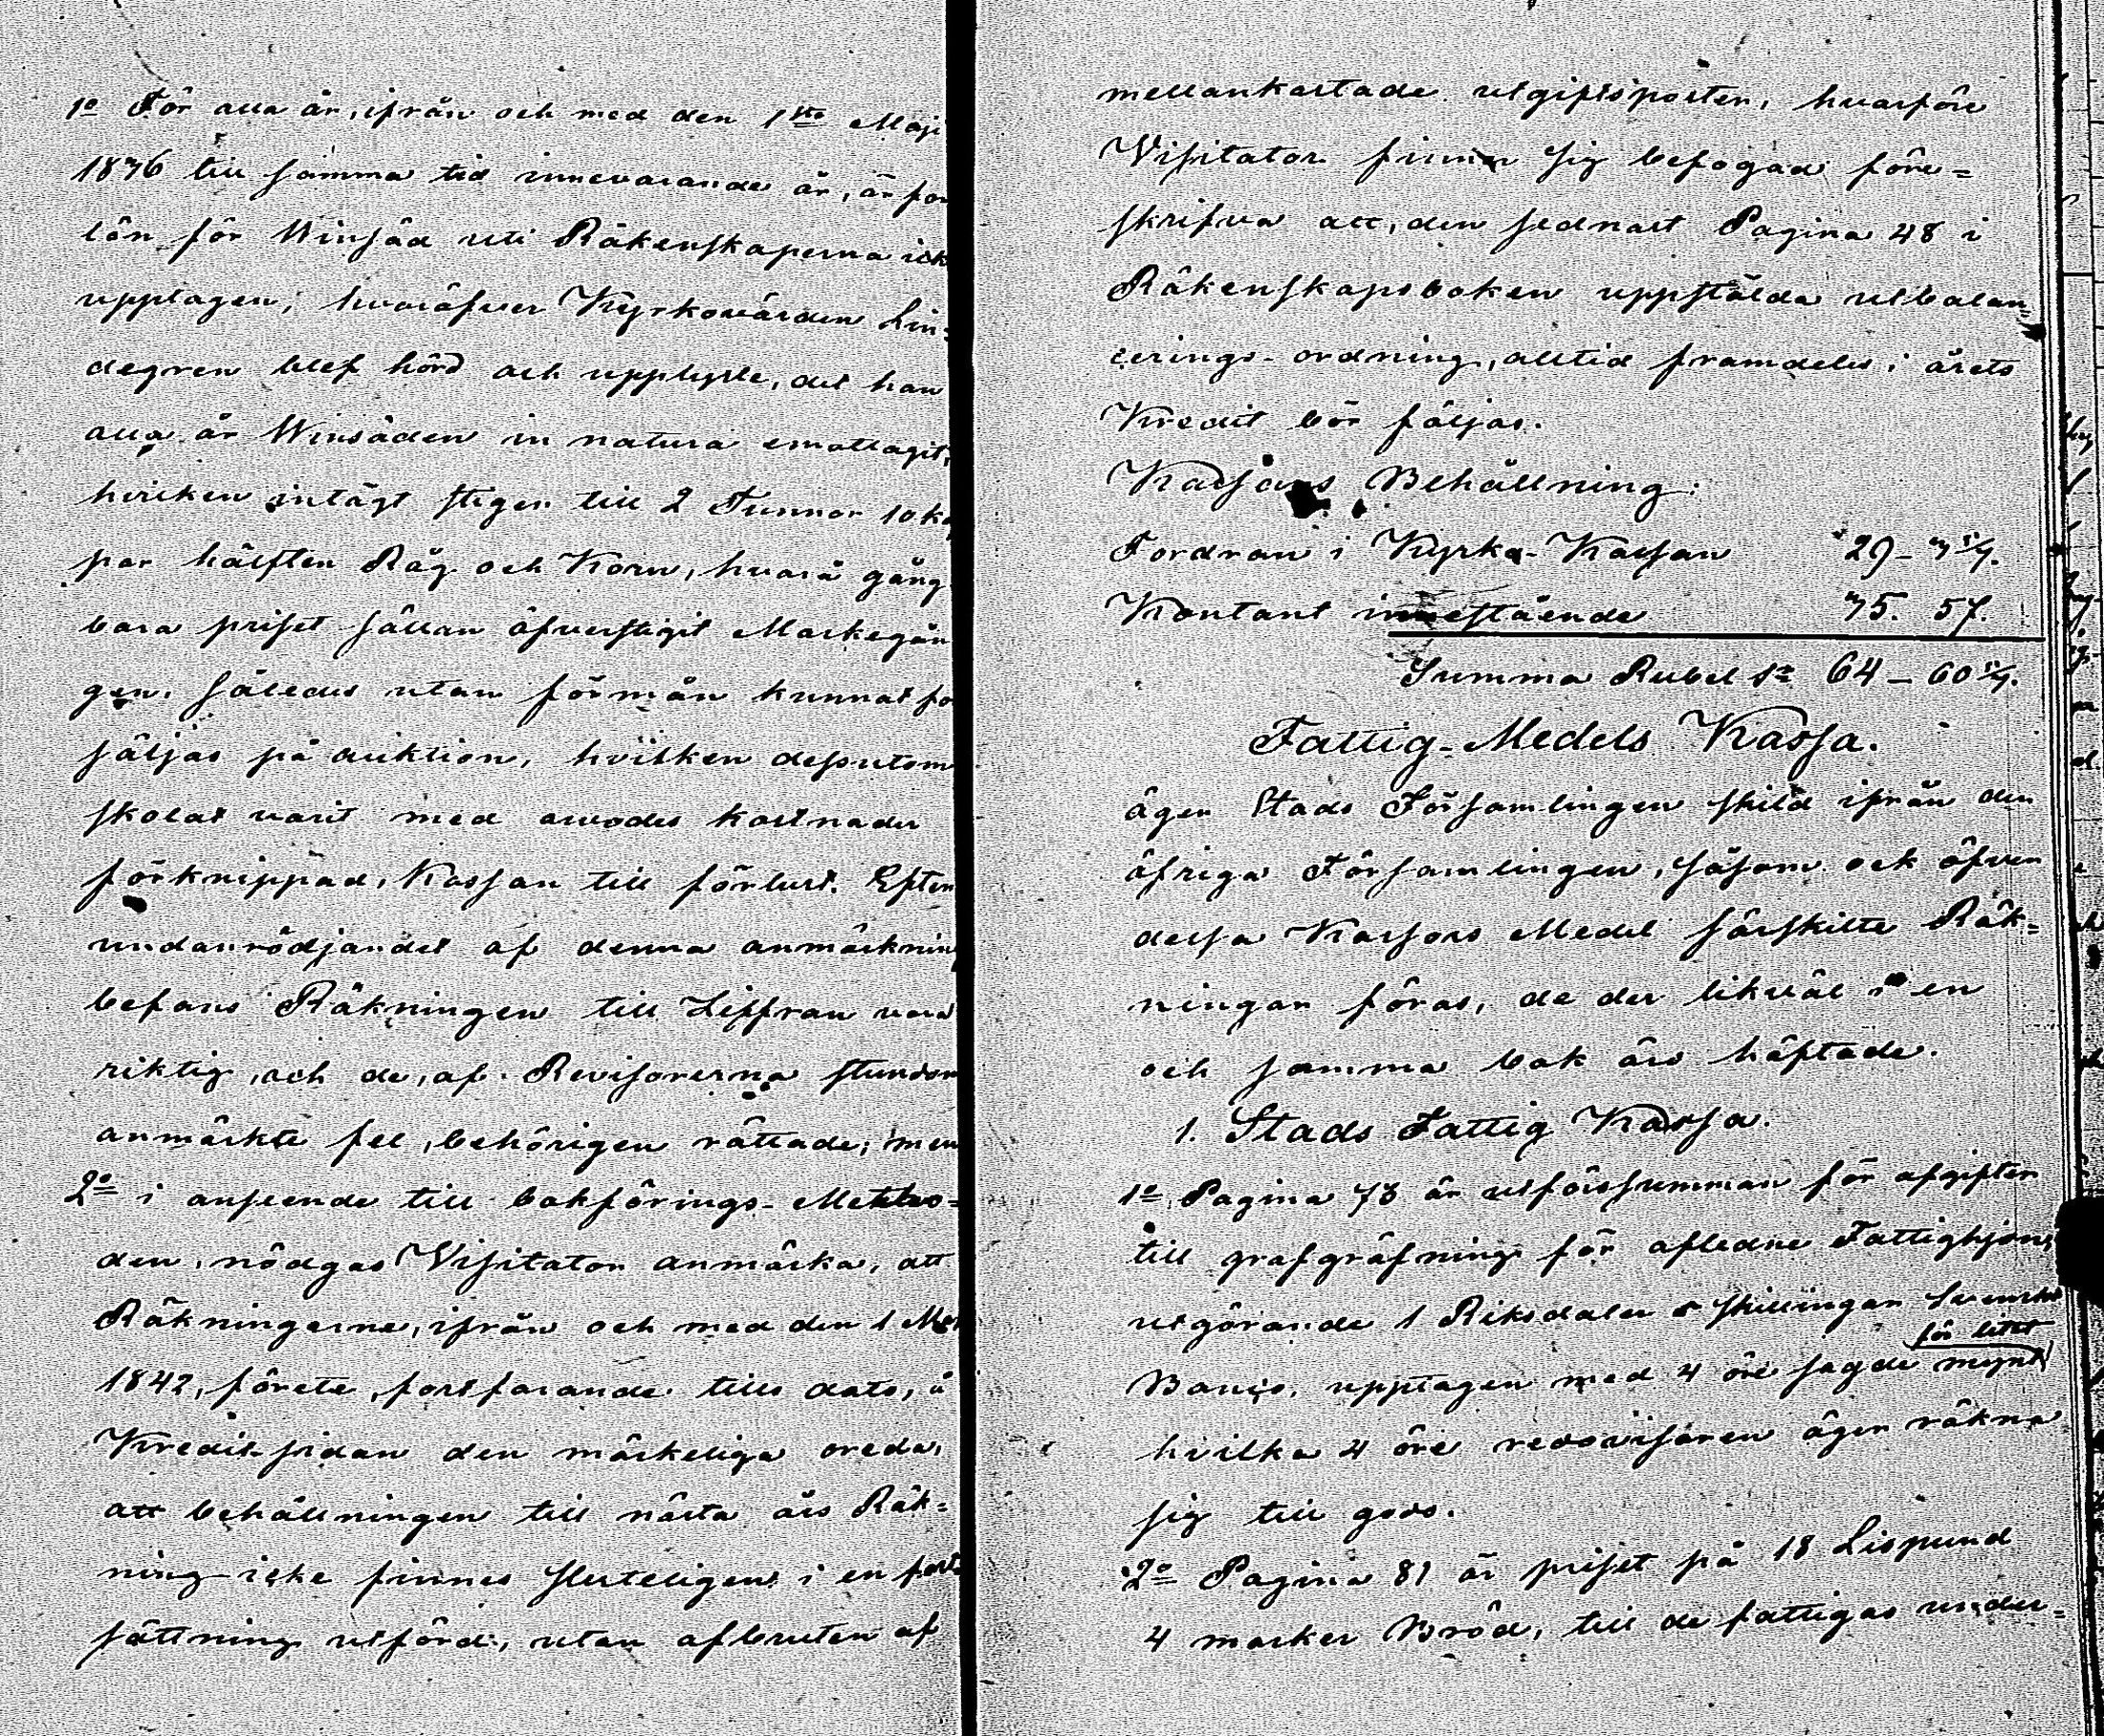 1o För alla år, ifrån och med den 1sta Maji
1836 till samma tid innevarande år, är för
lön för Winsäd uti Räkenskaperna ick
upptagen; hvaröfver Kyrkovärden Lin-
degren blef hörd och upplyste, det han
alla år Winsäden in natura emottagit,
hvilken intägt stiger till 2 Tunnor 10 ka
par hälften Råg och Korn, hvarå gång
bara priset sällan öfverstigit Markegån
gen, således utan förmån kunnat för
säljas på auktion, hvilken dessutom
skolat varit med arvodes kostnader
förknippad, Kassan till förlust. Efter
undanrödjandet af denna anmärkning
befans Räkningen till Ziffran vara
riktig, och de, af Revisorerna stundom
anmärkte fel, behörigen rättade; men
2o i anseende till bokförings-Metho-
den, nödgas Visitator anmärka, att
Räkningerne, ifrån och med den 1 Maj
1842, förete, fortfarande tills dato, å
Kredit sidan den märkeliga oreda,
att behållningen till nästa års Räk-
ning icke finnes sluteligen i en fort
sättning utförd, utan afbruten af
mellankastade utgiftsposter, hvarföre
Visitator finner sig befogad före-
skrifva att, den sednast Pagina 48 i
Räkenskapsboken uppstälda utbalan-
cerings-ordning, alltid framdeles i årets
Kredit bör följas.
Kassans Behållning:
Fordran i Kyrko-Kassan 29-3 5/7.
Kontant innestående 35. 57.
Summa Rubel Sr 64-60 5/7.
Fattig-Medels Kassa.
äger Stads Församlingen skild ifrån den
öfriga Församlingen, såsom ock öfver
dessa Kassors Medel särskilte Räk-
ningar föras, de der likväl i en
och samma bok äro häftade.
1. Stads Fattig Kassa.
1o Pagina 73 är utförssumman för afgiften
till grafgräfning för afledne Fattighjon,
utgörande 1 Riksdaler 8 skillingar Svenska
för litet
Banco, upptagen med 4 öre sagde mynt
hvilka 4 öre redovisaren äger räkna
sig till godo.
2o Pagina 81 är priset på 18 Lispund
4 marker Bröd, till de fattigas under-